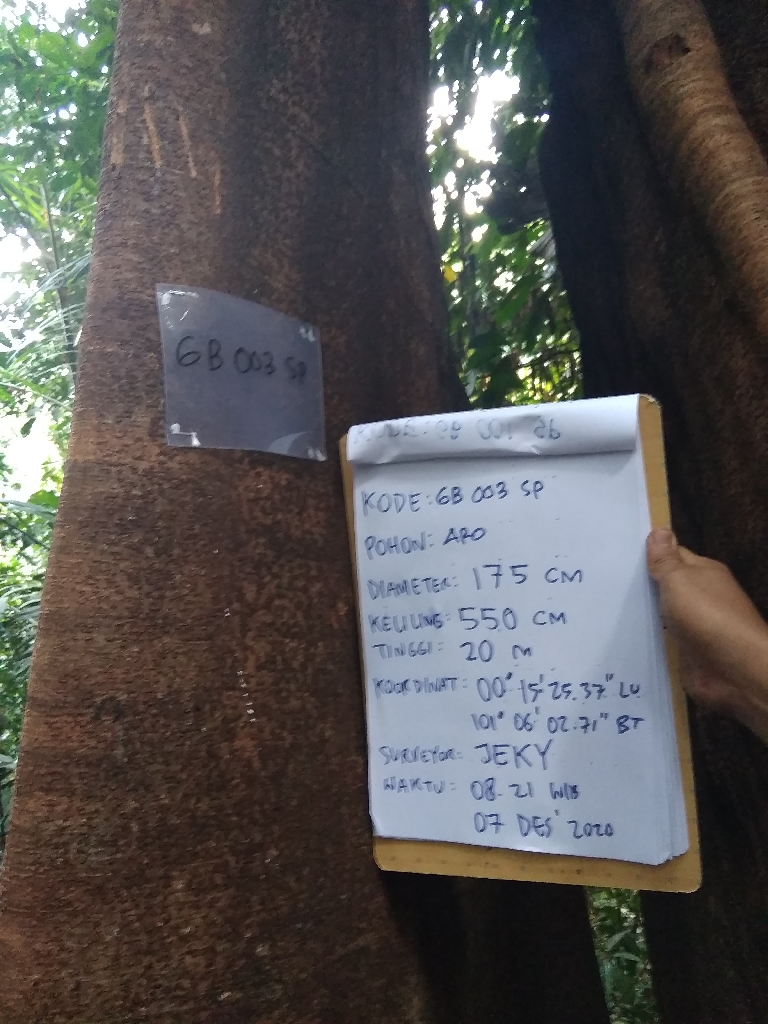 6B 003 SP
KODE: 6B 003 SP
POHON: ARO
DIAMETER: 175 CM
KELILING: 550 CM
TINGGI: 20 M
KOORDINAT: 00° 15' 25.37" LU
101° 06' 02.71" BT
SURVEYOR: JEKY
WAKTU: 08.21 WIB
07 DES' 2020